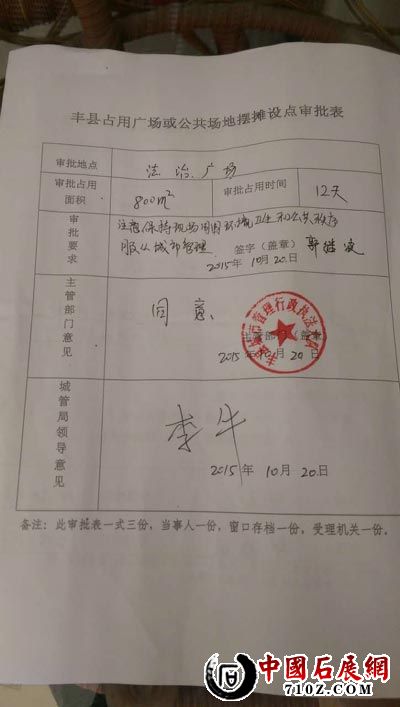 丰县占用广场或公共场地摆摊设点审批表
审批地点 法治广场
审批占用面积 800m² 审批占用时间 12天
审批要求 注意保持现场周围环境卫生和公共秩序
服从城市管理. 签字（盖章）
2015年10月20日
主管部门意见 同意
主管部门（盖章）
2015年10月20日
城管局领导意见 李牛
2015年10月20日
备注：此审批表一式三份，当事人一份，窗口存档一份，受理机关一份。
中國石展網
71OZ.COM